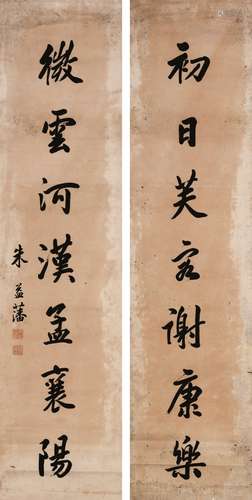 初日芙容謝康樂
微雲河漢孟襄陽
朱益藩